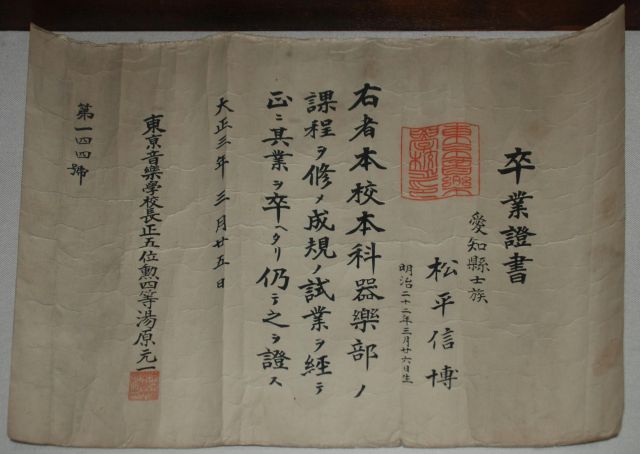 卒業證書
愛知縣士族
松平信博
明治二十二年三月廿六日生
右者本校本科器樂部ノ
課程ヲ修メ成規ノ試業ヲ經テ
正ニ其業ヲ卒ヘタリ仍テ之ヲ證ス
大正三年三月廿五日
東京音樂學校長正五位勲四等湯原元一
第一四四號